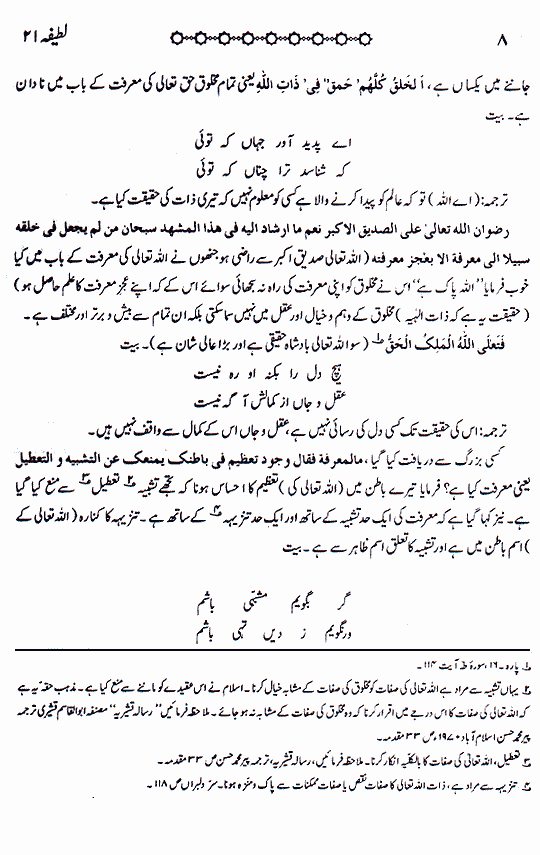 ۸ لطیفہ ۲۱
جاننے میں یکساں ہے، اَلخَلقُ کُلَّهُم' حَمقَ" فِی' ذَاتِ اللّٰهِ یعنی تمام مخلوق حق تعالی کی معرفت کے باب میں نادان
ہے۔ بیت
اے پدید آور جہاں کہ توئی
کہ شناسد ترا چناں کہ توئی
ترجمہ: (اے اللہ) تو کہ عالم کو پیدا کرنے والا ہے کسی کو معلوم نہیں کہ تیری ذات کی حقیقت کیا ہے۔
رضوان الله تعالیٰ علی الصدیق الاکبر نعم ما ارشاد الیه فی هذا المشهد سبحان من لم یجعل فی خلقه
سبیلا الی معرفة الا بعجز معرفته (اللہ تعالی صدیق اکبر سے راضی ہو جنھوں نے اللہ تعالی کی معرفت کے باب میں کیا
خوب فرمایا "اللہ پاک ہے" اس نے مخلوق کو اپنی معرفت کی راہ نہ بجھائی سوائے اس کے کہ اپنے عجز معرفت کا علم حاصل ہو)
(حقیقت یہ ہے کہ ذات الہٰیہ) مخلوق کے وہم و خیال اور عقل میں نہیں سما سکتی بلکہ ان تمام سے بیش و برتر اور مختلف ہے۔
فَتَعٰلَی اللّٰهُ الْمَلِکُ الْحَقُّ ۱ (سو اللہ تعالی بادشاہ حقیقی ہے اور بڑا عالی شان ہے)۔ بیت
ہیچ دل را بکنہ او رہ نیست
عقل و جاں از کمالش آگہ نیست
ترجمہ: اس کی حقیقت تک کسی دل کی رسائی نہیں ہے، عقل و جاں اس کے کمال سے واقف نہیں ہیں۔
کسی بزرگ سے دریافت کیا گیا، مالمعرفة فقال وجود تعظیم فی باطنک یمنعک عن التشبیه و التعطیل
یعنی معرفت کیا ہے؟ فرمایا تیرے باطن میں (اللہ تعالی کی) تعظیم کا احساس ہونا کہ تجھے تشبیہ ۲ تعطیل ۳ سے منع کیا گیا
ہے۔ نیز کہا گیا ہے کہ معرفت کی ایک حد تشبیہ کے ساتھ اور ایک حد تنزیہہ ۴ کے ساتھ ہے۔ تنزیہہ کا کنارہ (اللہ تعالی کے
) اسم باطن میں ہے اور تشبیہ کا تعلق اسم ظاہر سے ہے۔ بیت
گر بگویم مشبّہی باشم
ورنگویم ز دیں تہی باشم
۱ پارہ۔ ۱۶، سورۂ طہ آیت ۱۱۴۔
۲ یہاں تشبیہ سے مراد ہے اللہ تعالی کی صفات کو مخلوق کی صفات کے مشابہ خیال کرنا۔ اسلام نے اس عقیدے کو ماننے سے منع کیا ہے۔ مذہب حقہ یہ ہے
کہ اللہ تعالی کی صفات کا اس درجے میں اقرار کرنا کہ وہ مخلوق کی صفات کے مشابہ نہ ہو جائے۔ ملاحظہ فرمائیں "رسالہ قشیریہ" مصنفہ ابوالقاسم قشیری ترجمہ
پیر محمد حسن اسلام آباد ۱۹۷۰ء ص ۳۳ مقدمہ۔
۳ تعطیل، اللہ تعالی کی صفات کا بالکلیہ انکار کرنا۔ ملاحظہ فرمائیں، رسالہ قشیریہ، ترجمہ پیر محمد حسن ص ۳۳ مقدمہ۔
۴ تنزیہہ سے مراد ہے، ذات اللہ تعالی کا صفات نقص یا صفات ممکنات سے پاک و منزہ ہونا۔ سر دلبراں ص ۱۱۸۔